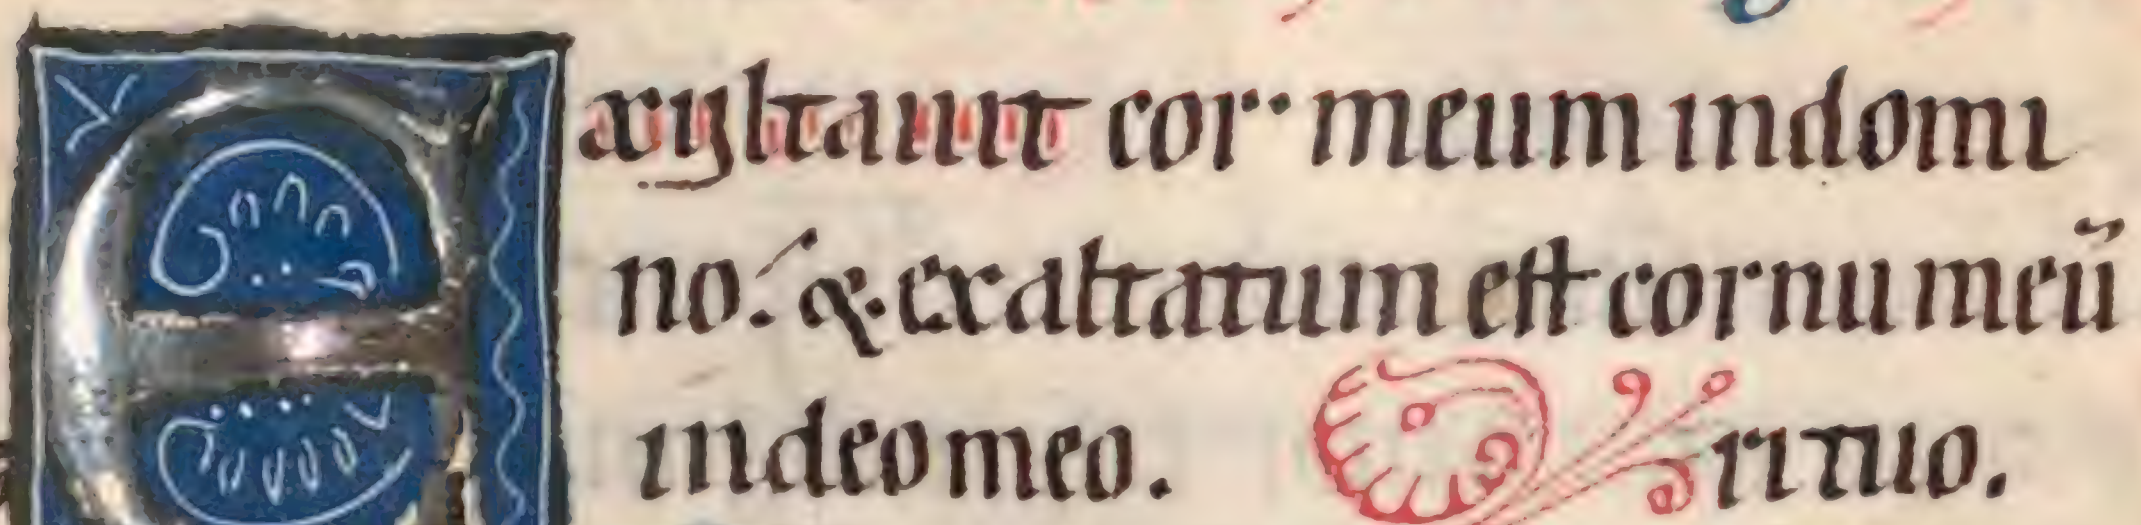 Exultauit cor meum indomi
no: & exaltatum est cornu meū
indeo meo. rituo.